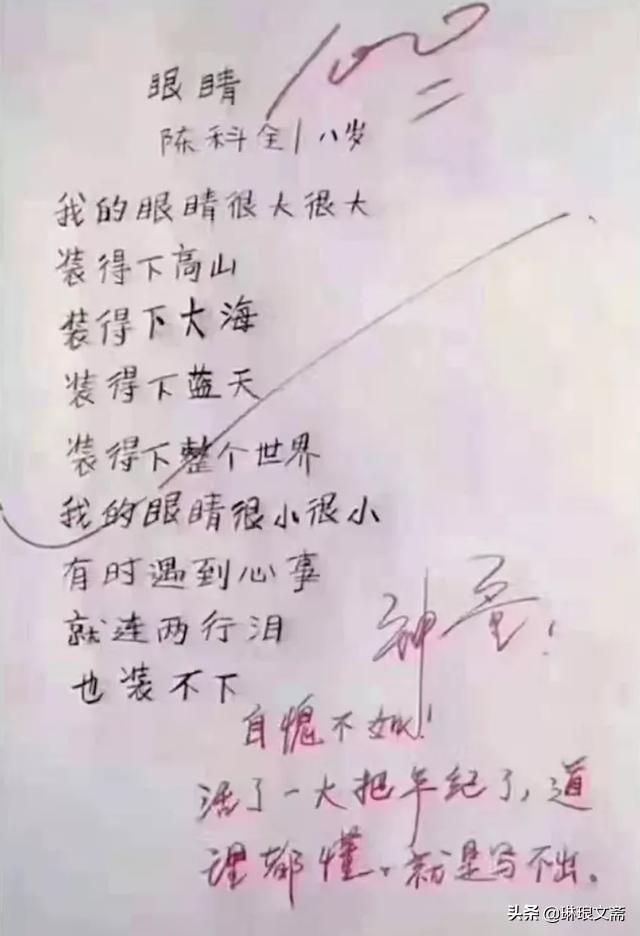 100
眼睛
陈科全 八岁
我的眼睛很大很大
装得下高山
装得下大海
装得下蓝天
装得下整个世界
我的眼睛很小很小
有时遇到心事
就连两行泪
也装不下
神童!
自愧不如!
活了一大把年纪了,道
理都懂,就是写不出。
头条 @琳琅文斋